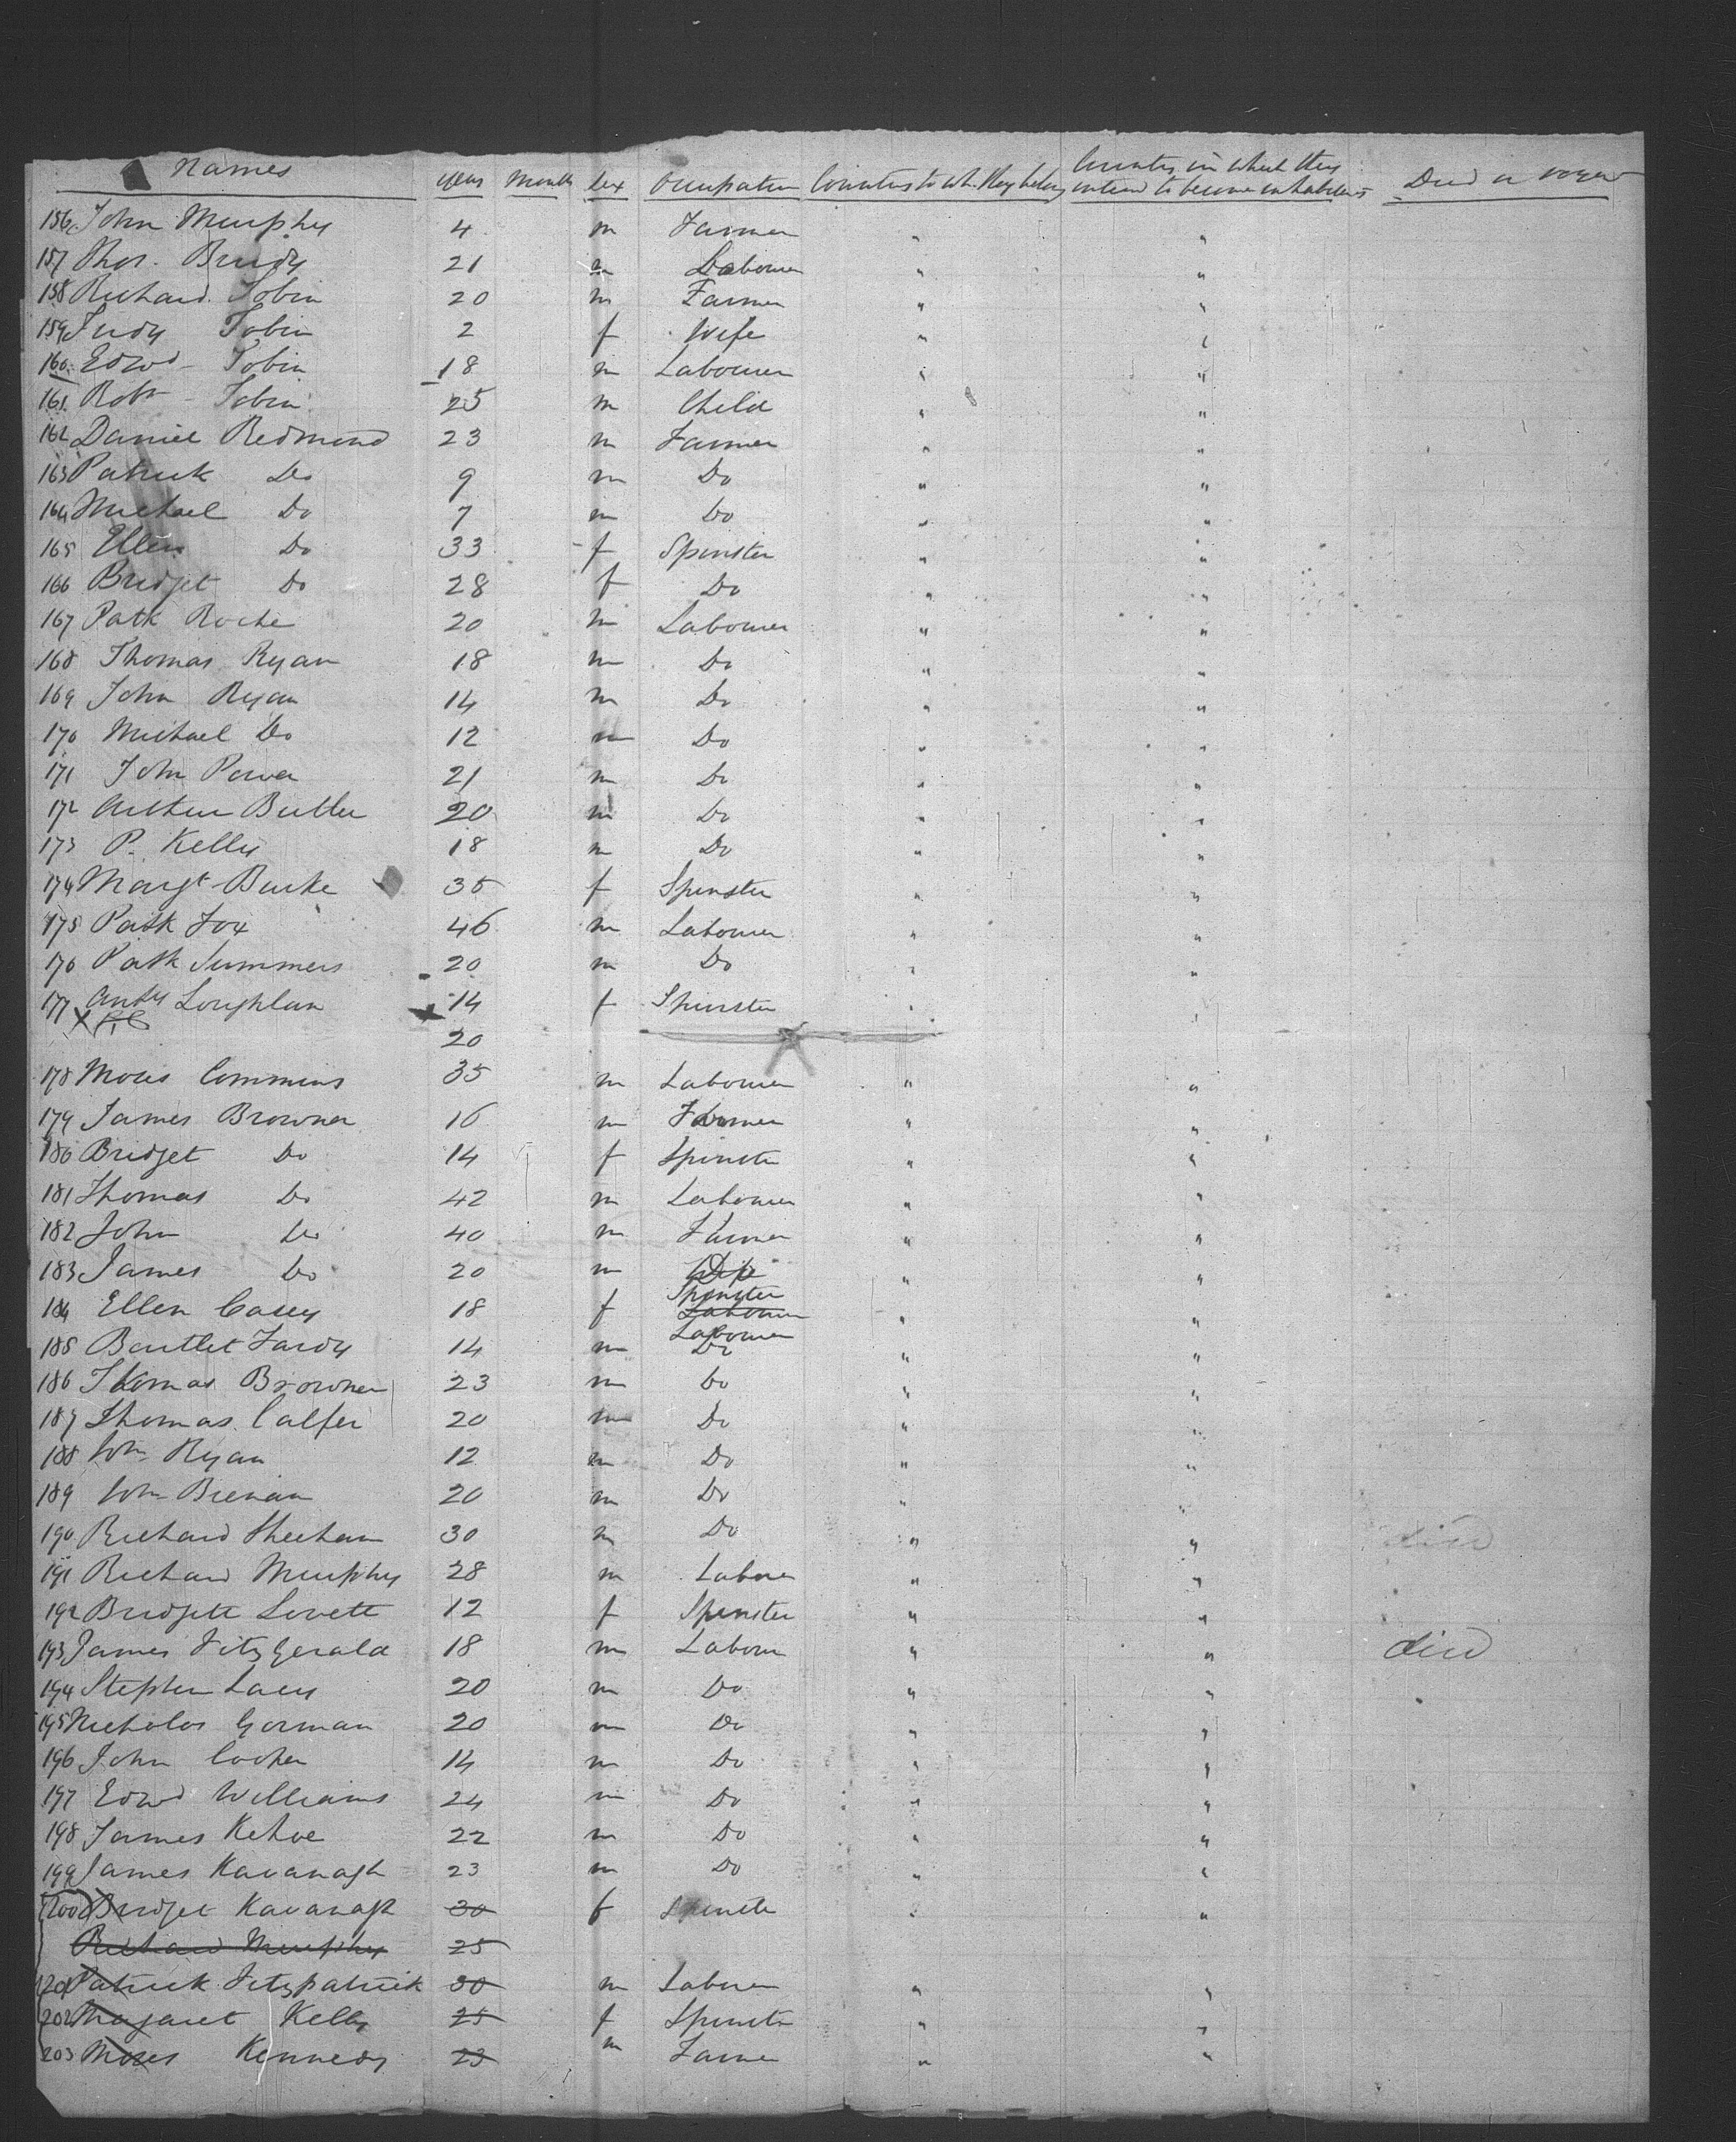 Names years Months Sex Occupation Countries to wh. they belong Country in which they intend to become inhabitants Died on voyage
156 John Murphy 4 m Farmer " "
157 Thos. Brudy 21 m Labourer " "
158 Richard Tobin 20 m Farmer " "
159 Judy Tobin 2 f Wife " "
160 Edwd Tobin 18 m Labourer " "
161 Robt Tobin 25 m Child " "
162 Daniel Redmond 23 m Farmer " "
163 Patrick Do 9 m Do " "
164 Michael Do 7 m Do " "
165 Ellen Do 33 f Spinster " "
166 Bridget Do 28 f Do " "
167 Patk Roche 20 m Labourer " "
168 Thomas Ryan 18 m Do " "
169 John Ryan 14 m Do " "
170 Michael Do 12 m Do " "
171 John Power 21 m Do " "
172 Arthur Butler 20 m Do " "
173 P. Kelly 18 m Do " "
174 Margt Burke 35 f Spinster " "
175 Patk Fox 46 m Labourer " "
176 Patk Summers 20 m Do " "
177 Anty Loughlan 14 f Spinster " "
20
178 Moses Commins 35 m Labourer " "
179 James Browner 16 m Farmer " "
180 Bridget Do 14 f Spinster " "
181 Thomas Do 42 m Labourer " "
182 John Do 40 m Farmer " "
183 James Do 20 m Do " "
184 Ellen Casey 18 f Spinster Labourer " "
185 Bartlet Fardy 14 m Labourer Do " "
186 Thomas Browner 23 m Do " "
187 Thomas Calfer 20 m Do " "
188 Wm Ryan 12 m Do " "
189 Wm Brenan 20 m Do " "
190 Richard Sheehan 30 m Do " " died
191 Richard Murphy 28 m Labore " "
192 Bridgett Levett 12 f Spinster " "
193 James Fitzgerald 18 m Labour " " died
194 Stephen Lacy 20 m Do " "
195 Nicholas Gorman 20 m Do " "
196 John Cooher 14 m Do " "
197 Edwd Williams 24 m Do " "
198 James Kehoe 22 m Do " "
199 James Kavanagh 23 m Do " "
200 Bridget Kavanagh 30 f Spinster " "
Richard Murphy 25
201 Patrick Fitzpatrick 30 m Laborer " "
202 Magaret Kelly 25 f Spinster " "
203 Moses Kennedy 23 m Farmer " "